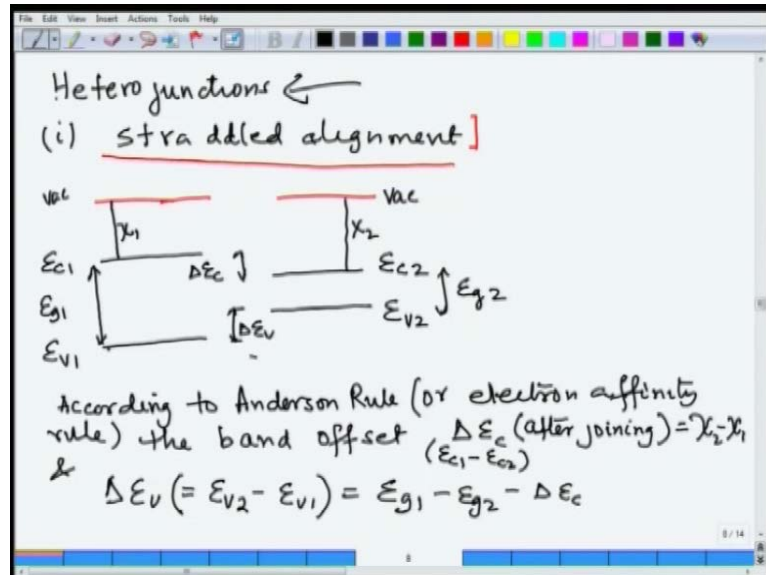 File Edit View Insert Actions Tools Help
Hetero junctions ←
(i) straddled alignment]
vac vac
χ₁ χ₂
Ec1 ΔEc Ec2
Eg1 Eg2
Ev1 ΔEv Ev2
According to Anderson Rule (or electron affinity
rule) the band offset ΔEc (after joining) = χ₂-χ₁
(Ec1 - Ec2)
& ΔEv (= Ev2 - Ev1) = Eg1 - Eg2 - ΔEc
8/14
8